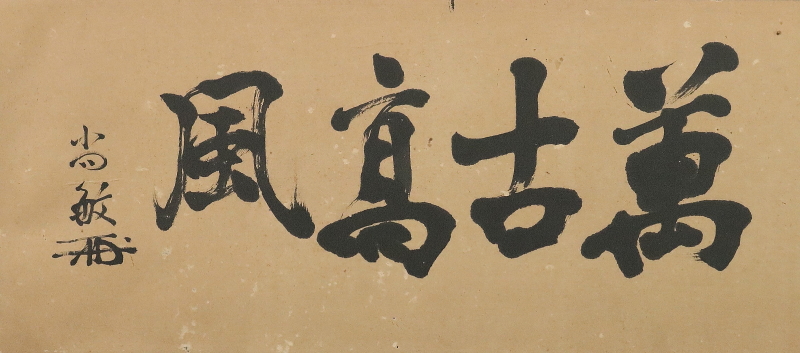 萬古高風
尚敏